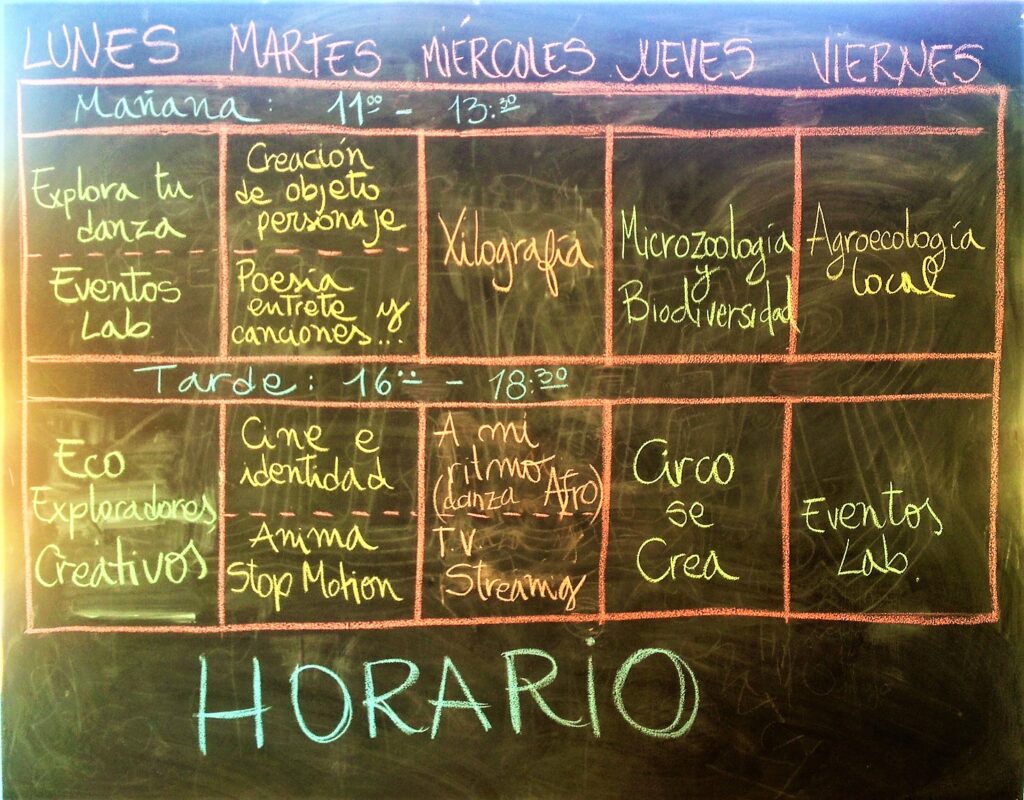 LUNES MARTES MIÉRCOLES JUEVES VIERNES
Mañana: 11⁰⁰ - 13:³⁰
Explora tu
danza
Eventos
Lab.
Creación
de objeto
personaje
Poesía
entrete y
canciones...
Xilografía
Microzoología
y
Biodiversidad
Agroecología
local
Tarde: 16⁰⁰ - 18:³⁰
Eco
Exploradores
Creativos
Cine e
identidad
Anima
Stop Motion
A mi
ritmo
(danza Afro)
T.V.
Streamig
Circo
se
Crea
Eventos
Lab.
HORARIO